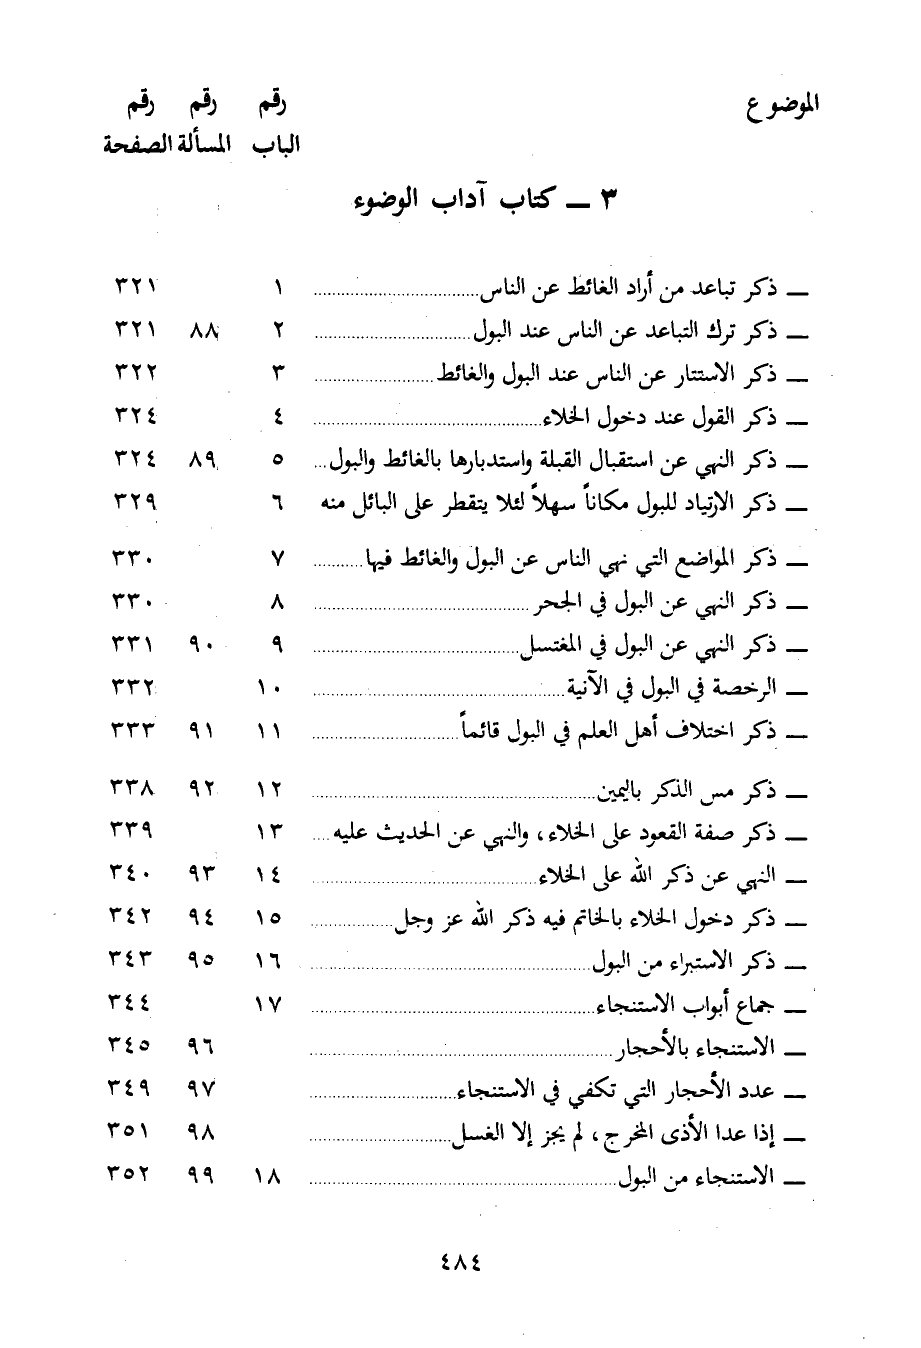 الموضوع رقم رقم رقم
الباب المسألة الصفحة
٣ ــ كتاب آداب الوضوء
ــ ذكر تباعد من أراد الغائط عن الناس ........ ١ ٣٢١
ــ ذكر ترك التباعد عن الناس عند البول ........ ٢ ٨٨ ٣٢١
ــ ذكر الاستتار عن الناس عند البول والغائط ........ ٣ ٣٢٢
ــ ذكر القول عند دخول الخلاء ........ ٤ ٣٢٤
ــ ذكر النهي عن استقبال القبلة واستدبارها بالغائط والبول ... ٥ ٨٩ ٣٢٤
ــ ذكر الارتياد للبول مكاناً سهلاً لئلا يتقطر على البائل منه ٦ ٣٢٩
ــ ذكر المواضع التي نهي الناس عن البول والغائط فيها ........ ٧ ٣٣٠
ــ ذكر النهي عن البول في الجحر ........ ٨ ٣٣٠
ــ ذكر النهي عن البول في المغتسل ........ ٩ ٩٠ ٣٣١
ــ الرخصة في البول في الآنية ........ ١٠ ٣٣٢
ــ ذكر اختلاف أهل العلم في البول قائماً ........ ١١ ٩١ ٣٣٣
ــ ذكر مس الذكر باليمين ........ ١٢ ٩٢ ٣٣٨
ــ ذكر صفة القعود على الخلاء، والنهي عن الحديث عليه .... ١٣ ٣٣٩
ــ النهي عن ذكر الله على الخلاء ........ ١٤ ٩٣ ٣٤٠
ــ ذكر دخول الخلاء بالخاتم فيه ذكر الله عز وجل ........ ١٥ ٩٤ ٣٤٢
ــ ذكر الاستبراء من البول ........ ١٦ ٩٥ ٣٤٣
ــ جماع أبواب الاستنجاء ........ ١٧ ٣٤٤
ــ الاستنجاء بالأحجار ........ ٩٦ ٣٤٥
ــ عدد الأحجار التي تكفي في الاستنجاء ........ ٩٧ ٣٤٩
ــ إذا عدا الأذى المخرج، لم يجز إلا الغسل ........ ٩٨ ٣٥١
ــ الاستنجاء من البول ........ ١٨ ٩٩ ٣٥٢
٤٨٤